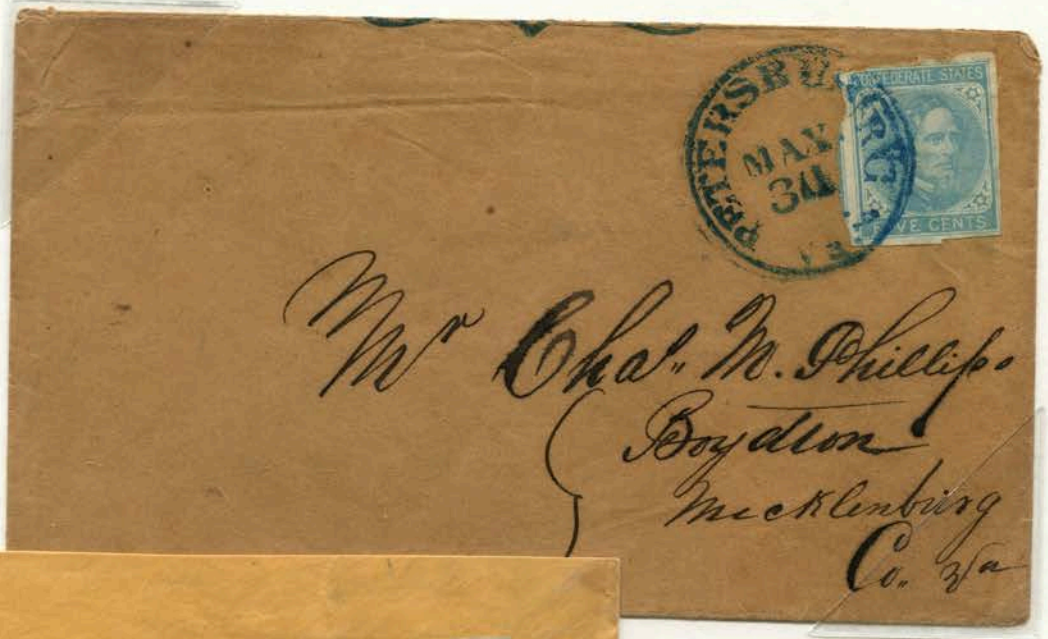 PETERSBURG
MAY
30
VA
CONFEDERATE STATES
FIVE CENTS
Mr Chas. M. Phillips
Boydton
Mecklenburg
Co. Va